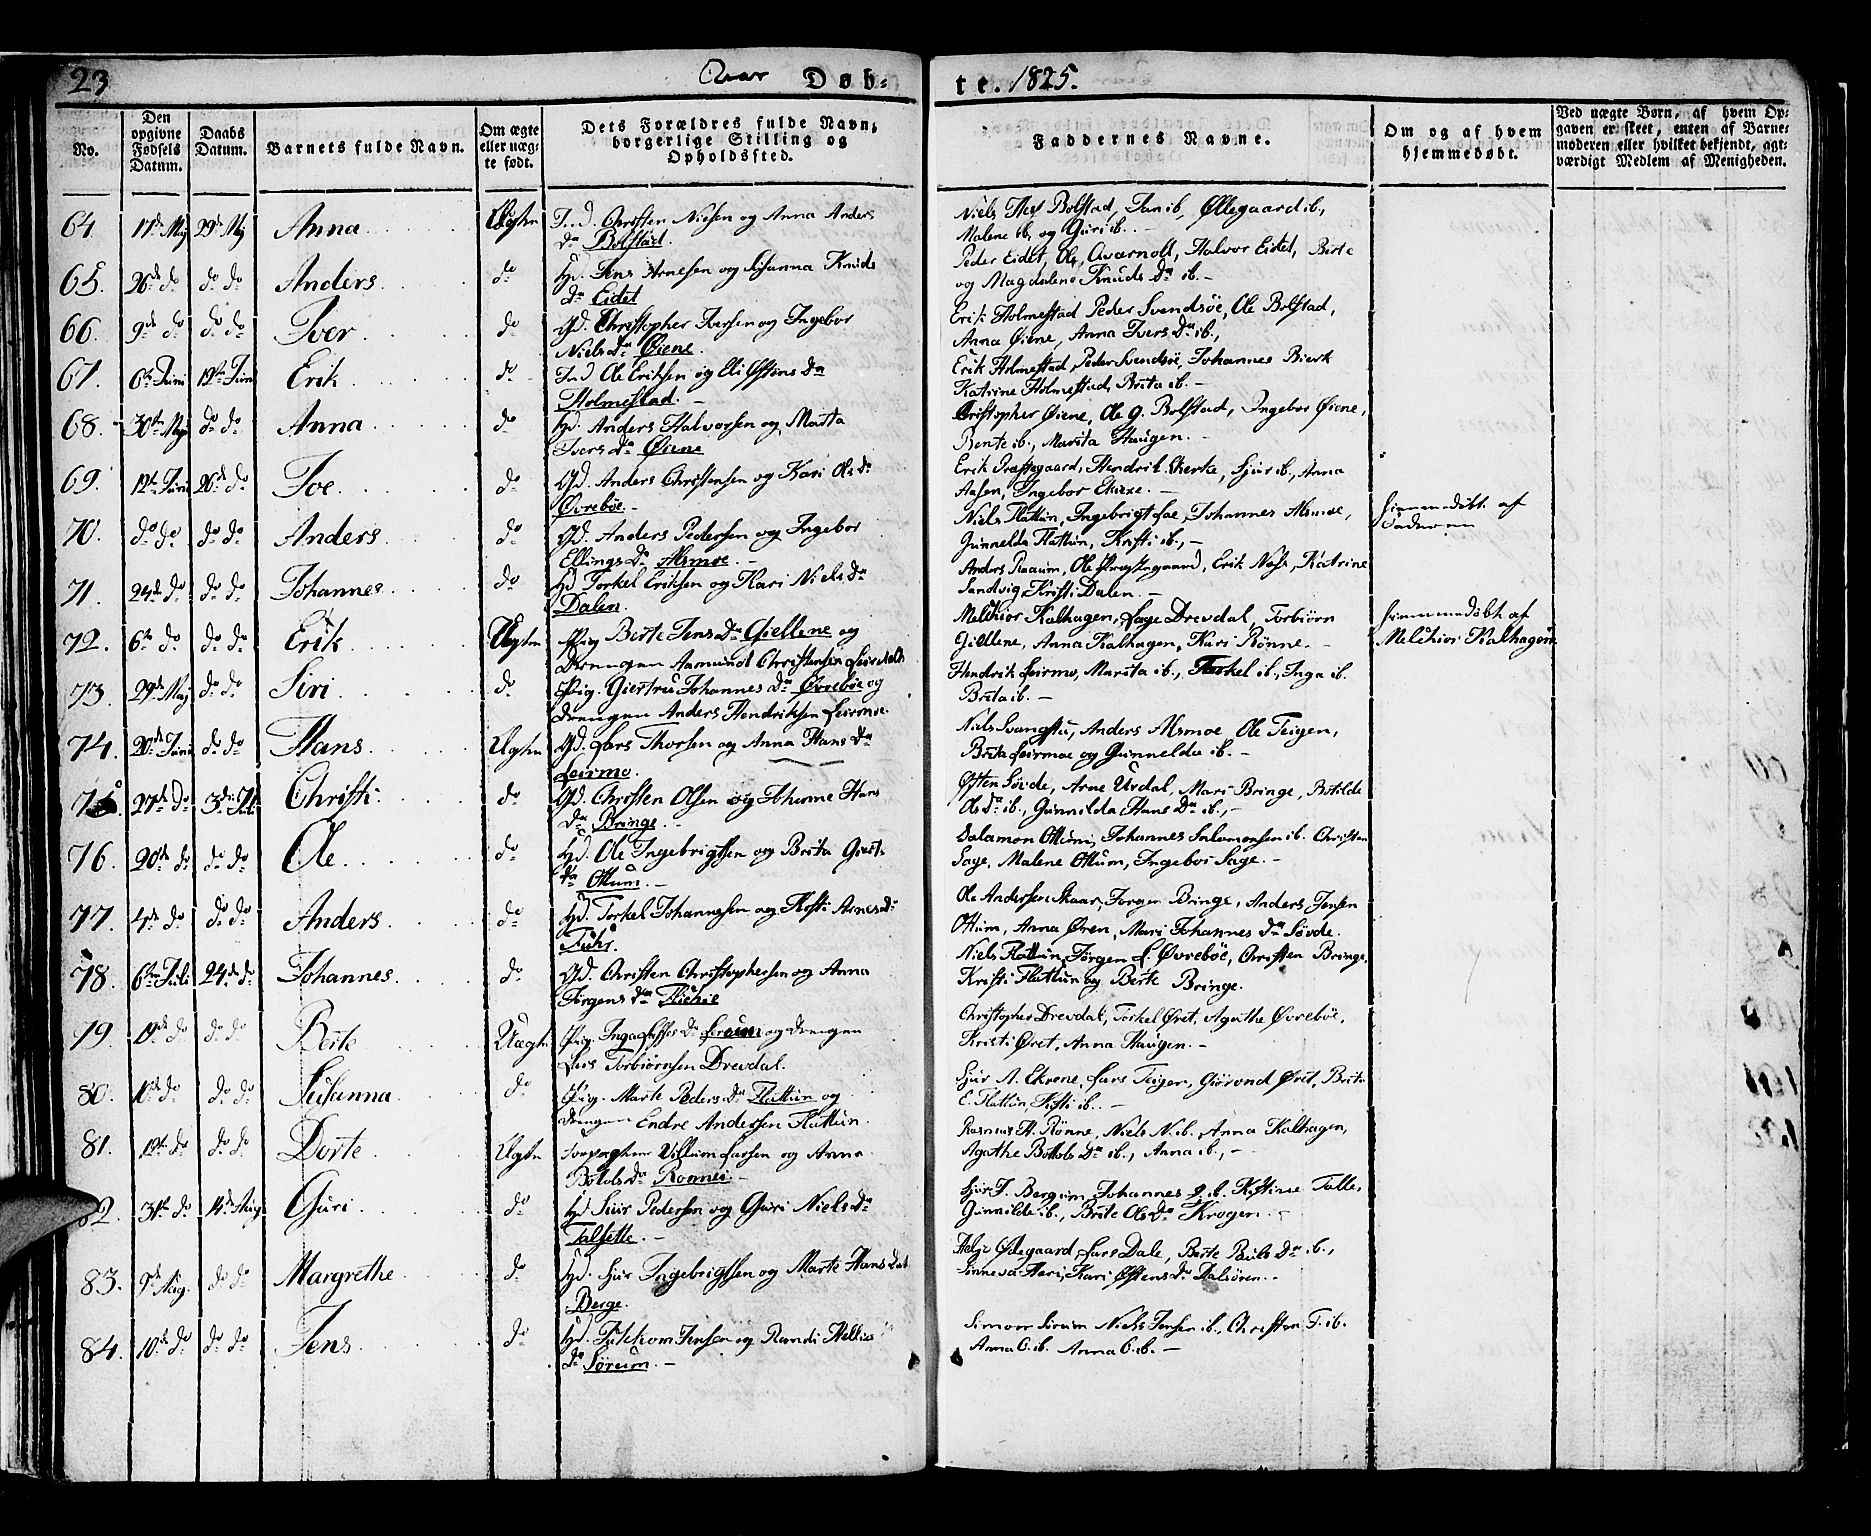 23
Aar Døb-
te. 1825.
No.
Den opgivne Fødsels Datum.
Daabs Datum.
Barnets fulde Navn.
Om ægte eller uægte født.
Dets Forældres fulde Navn, borgerlige Stilling og Opholdssted.
Faddernes Navne.
Om og af hvem hjemmedøbt.
Ved uægte Børn, af hvem Opgaven er skeet, enten af Barnemoderen eller hvilket bekjendt, agtværdigt Medlem af Menigheden.
64. 17de Maj 29de Maj Anna Ægte Ind. Christen Nielsen og Anna Anders
Dr Bolstad.
Niels Bolstad, Jan ib, Øllegaard ib.,
Malene ib, og Guri ib. -
65. 26de do do do Anders do Hd. Jens Arnesen og Susanna Knuds
Dr Eidet
Peder Eidet, Ole Qværnolt, Halvor Eidet, Birte
og Magdalene Knuds Dr ib. -
66. 9de do do do Iver do Gd. Christopher Iversen og Ingebor
Niels Dr Øiene.
Erik Holmestad Peder Svendsøe, Ole Bolstad,
Anna Øiene, Anna Ivers Dr ib.,
67. 6te Juni 12te Juni Erik do Ind Ole Eriksen og Eli Østens Dr
Holmestad. -
Erik Holmestad, Peder Svendsøe, Johannes Bierk
Katrine Holmestad, Brita ib. -
68. 30te Maj do do Anna do Hd. Anders Halvorsen og Marta
Ivers Dr Øiene
Christopher Øiene, Ole G. Bolstad, Ingebor Øiene,
Bente ib., Marita Haugen. -
69. 12te Juni 26de do Joe do Gd. Anders Christensen og Kari Ols Dr
Øvrebøe. -
Erik Præstegaard, Hendrik, Sjur ib., Anna
Aasen, Ingebor Ekrene. -
70. do do do do Anders do Gd. Anders Pedersen og Ingebor
Ellings Dr Alsmoe. -
Niels Flattun, Ingebrigt, Johannes Alsmoe,
Gunnelda Flattun, Kristi ib., -
hiemmedøbt af
Faderen
71. 24de do do do Johannes do Hd Torkel Eriksen og Kari Niels Dr
Dalen.
Anders Raaum, Ole Præstegaard, Erik Næss, Katrine
Sandvig, Kristi Dalen. -
72. 6te do do do Erik Uægte Pig. Birte Jens Dr Giellene og
Drengen Aamund Christensen
Melchior Kalhagen, Drevdal, Torbiørn
Giellene, Anna Kalhagen, Kari Rønne. -
hiemmedøbt af
Melchior Kalhagen
73. 29de Maj do do Siri do Pig. Giertru Johannes Dr Øvrebøe og
Drengen Anders Hendriksen Leirmoe.
Hendrik Leirmo, Marita ib., Torkel ib., Inga ib.
Brita ib. -
74. 20de Juni do do Hans Ægte Gd. Lars Thorsen og Anna Hans Dr
Leirmo.
Niels, Anders Alsmoe Ole Teigen,
Brita Leirmoe og Gunnelda ib. -
75. 27de do 3de Juli Christi do Gd. Christen Olsen og Hans
Dr Bringe. -
Østen Søvde, Arne Urdal, Mari Bringe, Botilde
Ols Dr ib., Gunnilda Hans Dr ib., -
76. 20de do do do Ole do Hd. Ole Ingebrigtsen og Brita
Dr Ottum. -
Salamon Ottum, Johannes Salomonsen ib. Christen
Sage, Malene Ottum, Ingebor Sage. -
77. 4de do do do Anders do Hd. Torkel Johannesen og Kristi Arnes Dr
Fuhr.
Ole Andersen Skaar, Jorgen Bringe, Anders Jensen
Ottum, Anna Øren, Mari Johannes Dr Søvde.
78. 6te Juli 24de do Johannes do Gd. Christen Christophersen og Anna
Jørgens Dr
Niels Flattun, Jørgen L. Øvrebøe, Christen Bringe,
Kristi Flattun og Berte Bringe.
79. 19de do do do Berte Uægte Pig. Inga Dr og Drengen
Lars Torbiørnsen Drevdal.
Christopher Drevdal, Torkel Øret, Agathe Øvrebøe,
Kristi Øret, Anna Haugen. -
80. 10de do do do Susanna do Pig. Marte Peders Dr Flattun og
Drengen Endre Andersen Flattun.
Sjur A. Ekrene, Lars Teigen, Giørond Øret, Brita
E. Flattun, Kristi ib. -
81. 19te do do do Dorte Ægte Villum Larsen og Anna
Botols Dr Ronnei. -
Rasmus H. Rønne, Niels N. ib., Anna Kalhagen,
Agathe Bottols Dr ib., Anna ib., -
82. 31te do 14de Aug. Guri do Hd Siur Pedersen og Guri Niels Dr
Talsette. -
Sjur J. Bergum, Johannes ib. Kristine Talle,
Gunnilde ib., Brite Ols Dr Krogen. -
83. 9de Aug. do do Margrethe do Hd. Sjur Ingebrigtsen og Marte Hans Dat
Berge.
Helje Ødegaard, Lars Dale, Berte Pauls Dr ib.,
Sinneva, Kari Østens Dr Dalsøren. -
84. 10de do do do Jens do Hd. Jensen og Randi
Dr Sørum. -
Simon Sørum Niels Jensen ib., Christen J. ib.
Anna O. ib. Anna O. ib. -